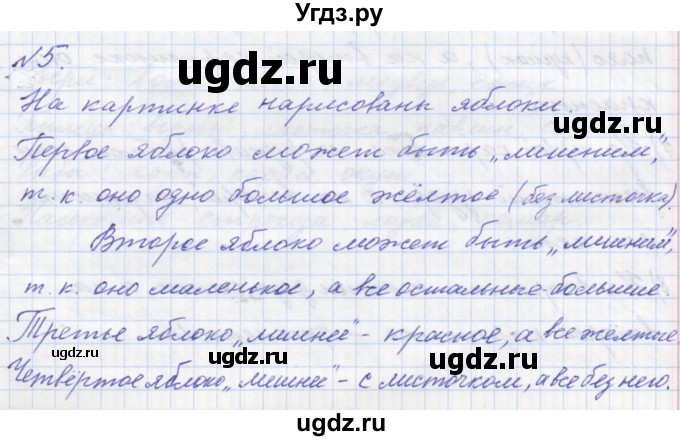 Угдз.ру
№5.
На картинке нарисованы яблоки.
Первое яблоко может быть „лишним",
т. к. оно одно большое жёлтое (без листочка).
Второе яблоко может быть „лишним",
т. к. оно маленькое, а все остальные-большие.
Третье яблоко „лишнее" - красное, а все жёлтые.
Четвёртое яблоко „лишнее" - с листочком, а все без него.
ugdz.ru
ugdz.ru
ugdz.ru
ugdz.ru
ugdz.ru
ugdz.ru
ugdz.ru
ugdz.ru